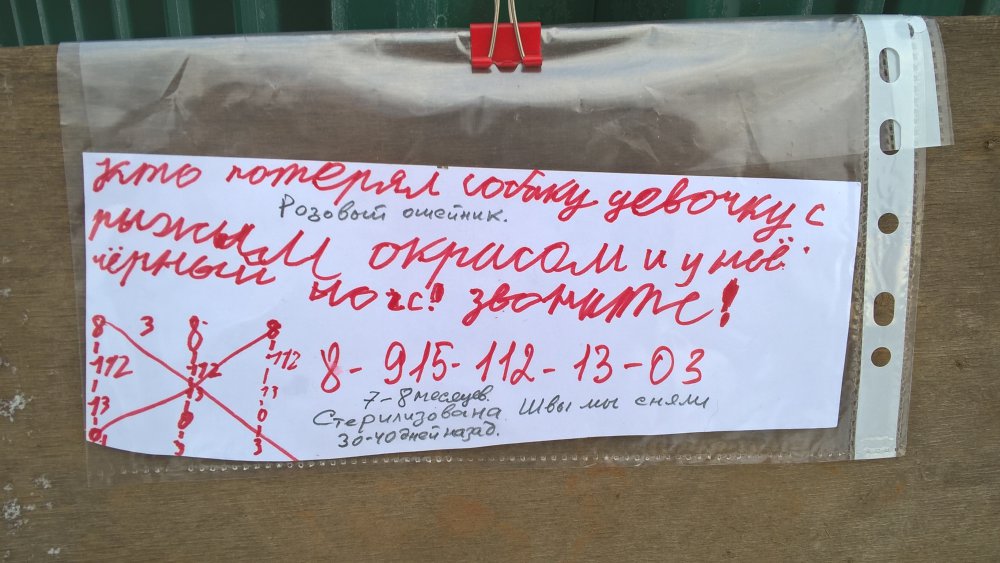 кто потерял собаку девочку с
Розовый ошейник.
рыжым окрасом и у неё
чёрный нос! звоните!
8 3 8 8
112 112 112
13 13 13
0 0 0
3 3
8-915-112-13-03
7-8 месяцев.
Стерилизована Швы мы сняли
30-40 дней назад.